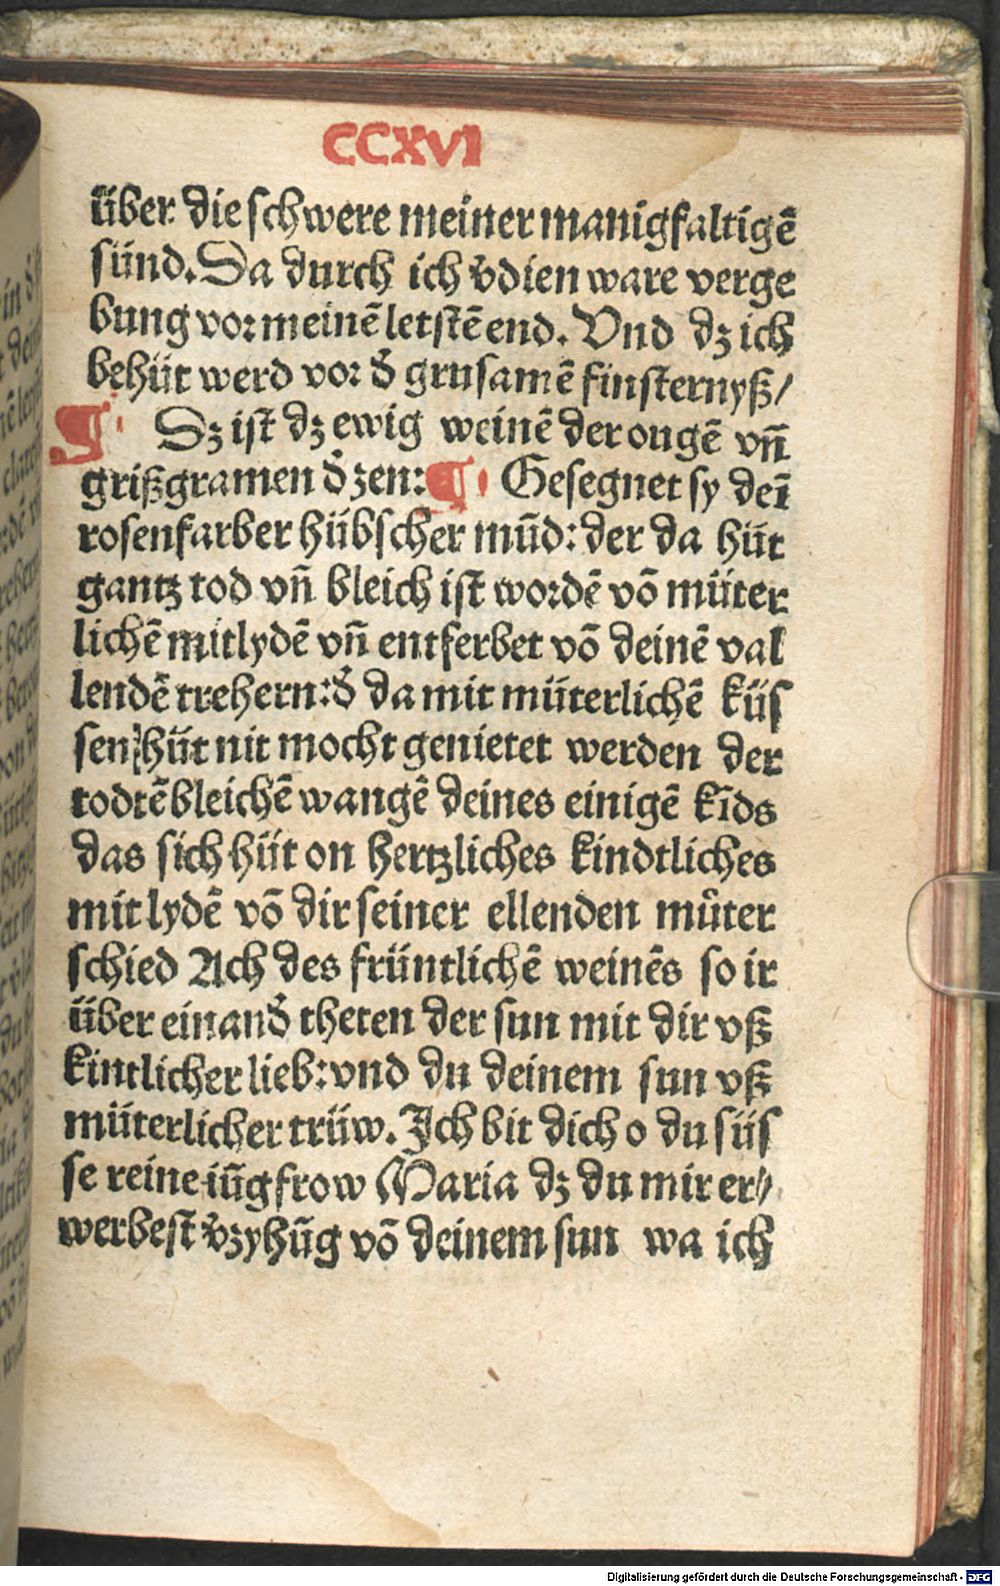 CCXVI
über die schwere meiner manigfaltigē
sünd. Da durch ich v̄dien ware verge
bung vor meinē letstē end. Vnd dz ich
behüt werd vor d̄ grusamē finsternyß/
¶ Dz ist dz ewig weinē der ougē vn̄
grißgramen d̄ zen: ¶ Gesegnet sy deī
rosenfarber hübscher mūd: der da hüt
gantz tod vn̄ bleich ist wordē vō müter
lichē mitlydē vn̄ entferbet vō deinē val
lendē trehern: d̄ da mit müterlichē küs
sen hüt nit mocht genietet werden der
todtē bleichē wangē deines einigē kīds
das sich hüt on hertzliches kindtliches
mitlydē vō dir seiner ellenden můter
schied Ach des früntlichē weinēs so ir
über einand̄ theten der sun mit dir vß
kintlicher lieb: vnd du deinem sun vß
müterlicher trüw. Ich bit dich o du süs
se reine iūgfrow Maria dz du mir er//
werbest v̄zyhūg vō deinem sun wa ich
Digitalisierung gefördert durch die Deutsche Forschungsgemeinschaft - DFG